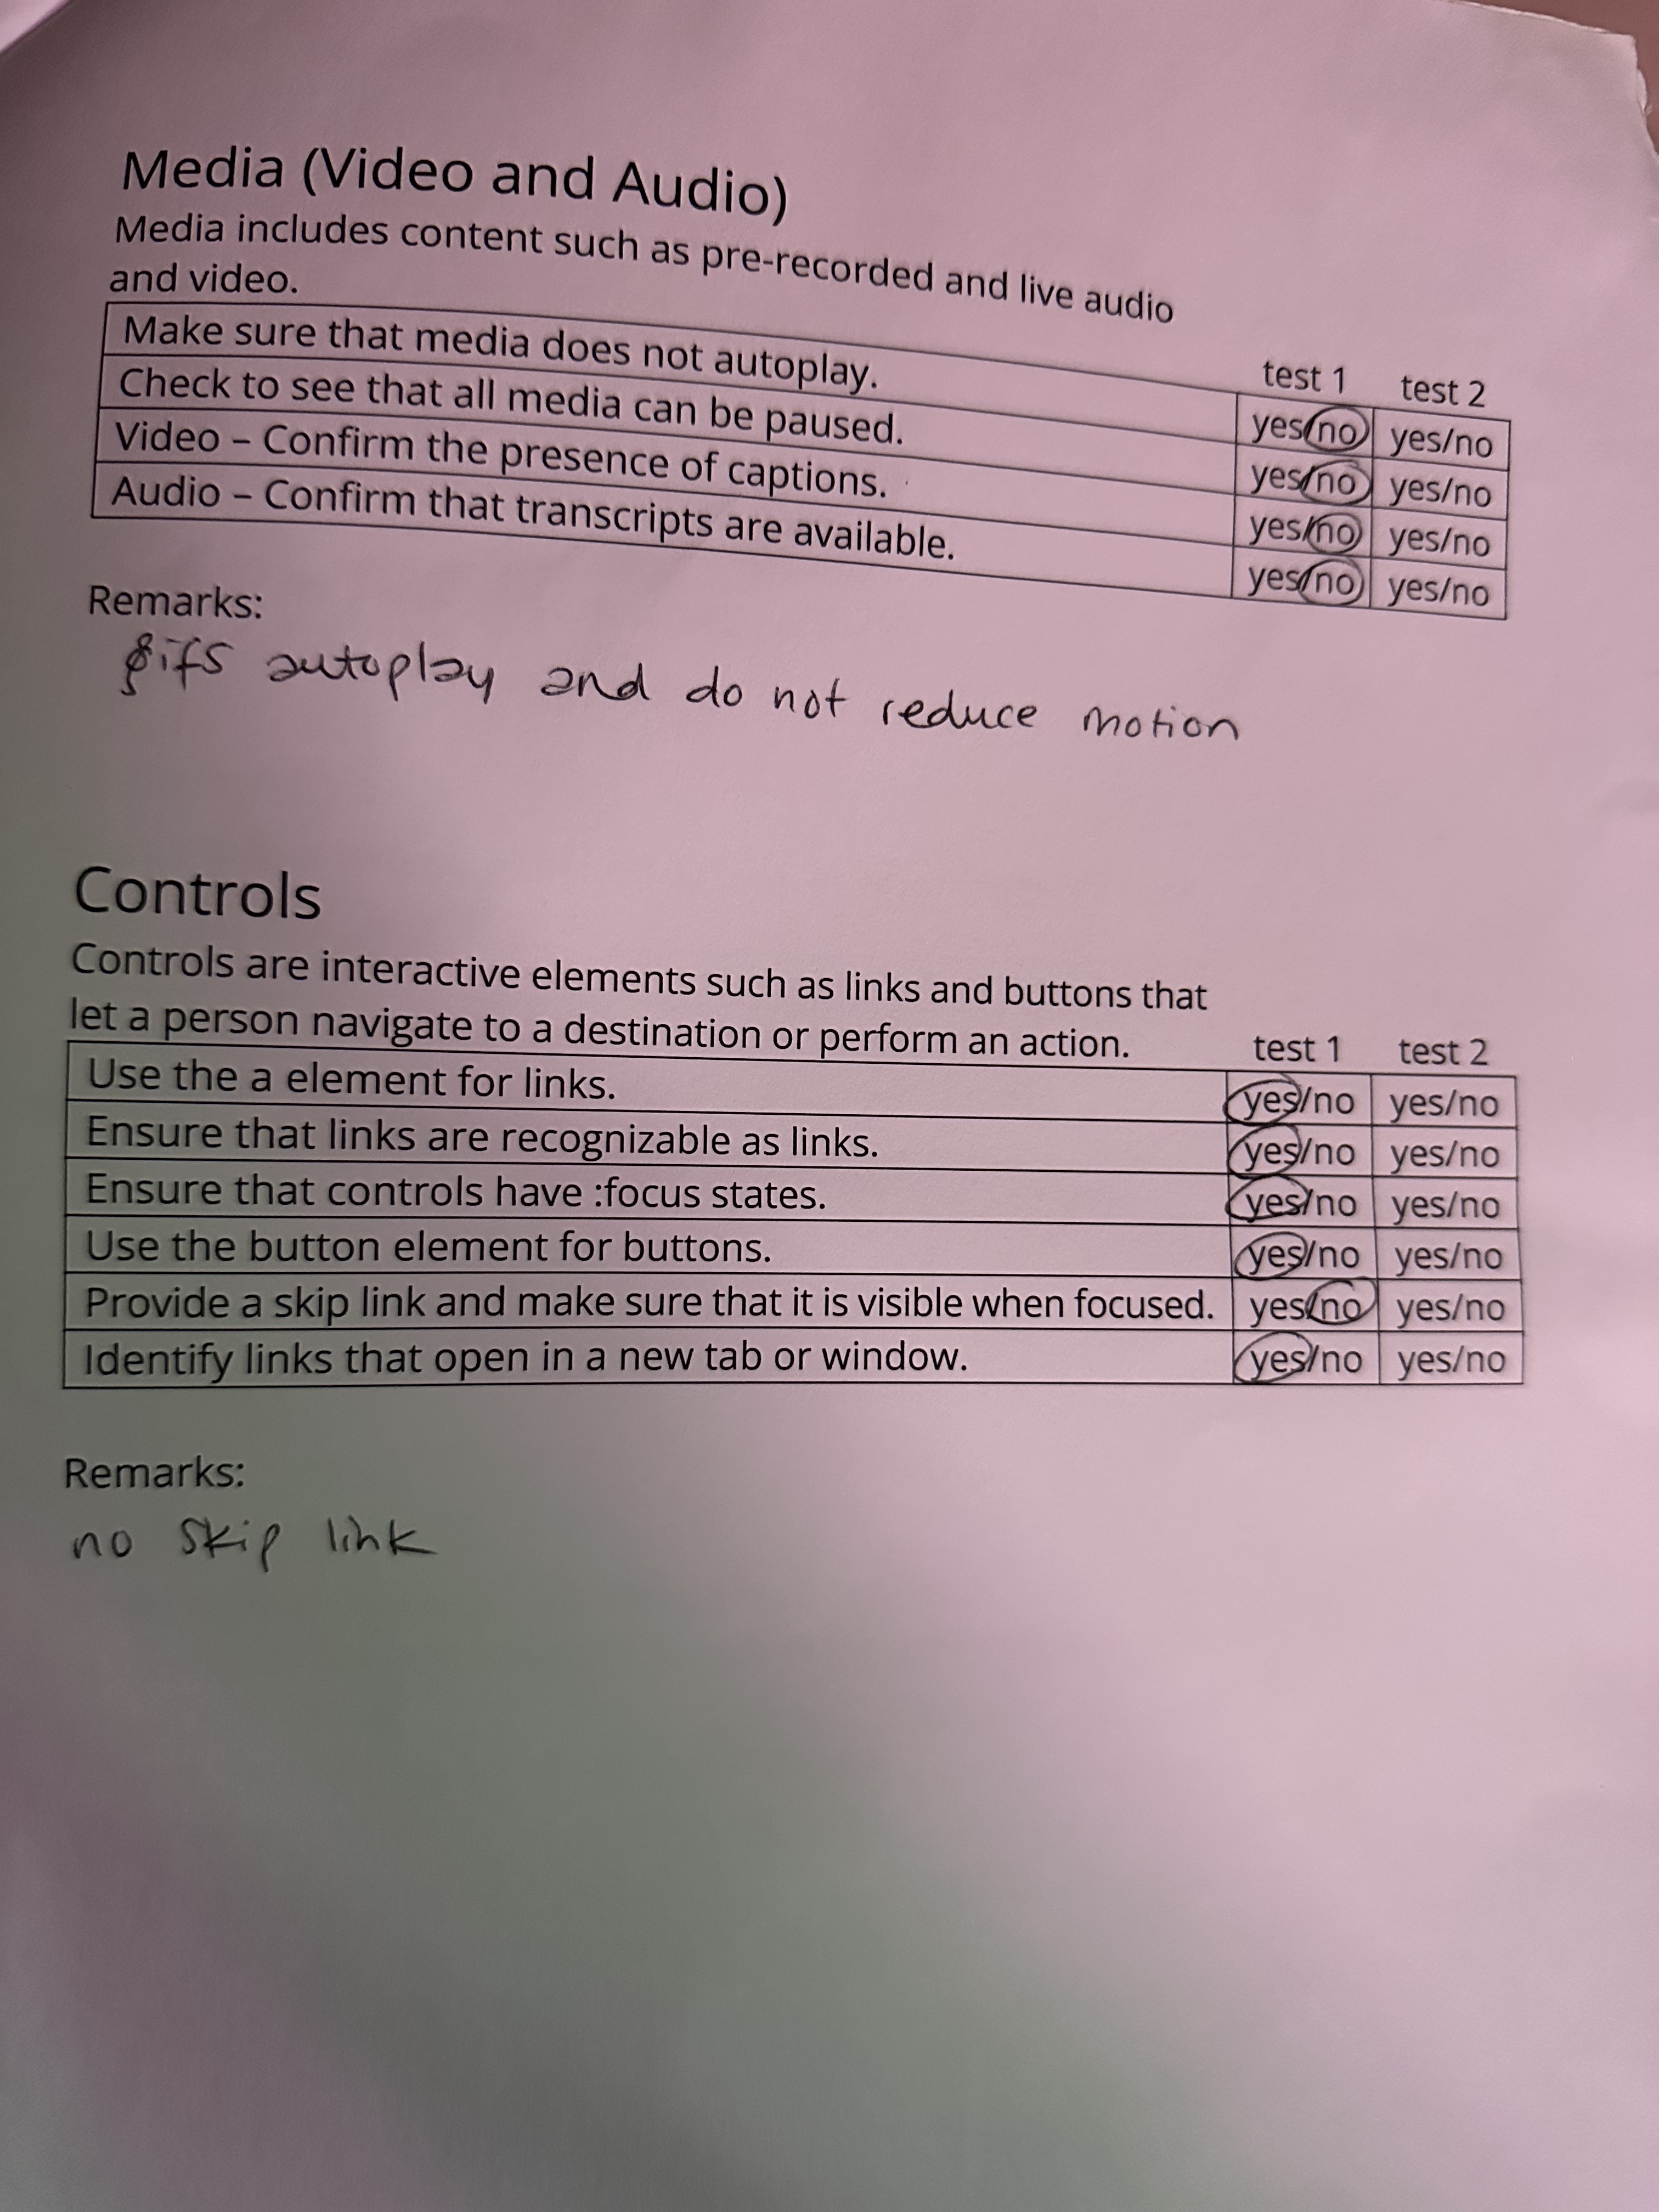 Media (Video and Audio)
Media includes content such as pre-recorded and live audio
and video.
test 1 test 2
Make sure that media does not autoplay. yes/no yes/no
Check to see that all media can be paused. yes/no yes/no
Video – Confirm the presence of captions. yes/no yes/no
Audio – Confirm that transcripts are available. yes/no yes/no
Remarks:
gifs autoplay and do not reduce motion
Controls
Controls are interactive elements such as links and buttons that
let a person navigate to a destination or perform an action.
test 1 test 2
Use the a element for links. yes/no yes/no
Ensure that links are recognizable as links. yes/no yes/no
Ensure that controls have :focus states. yes/no yes/no
Use the button element for buttons. yes/no yes/no
Provide a skip link and make sure that it is visible when focused. yes/no yes/no
Identify links that open in a new tab or window. yes/no yes/no
Remarks:
no skip link